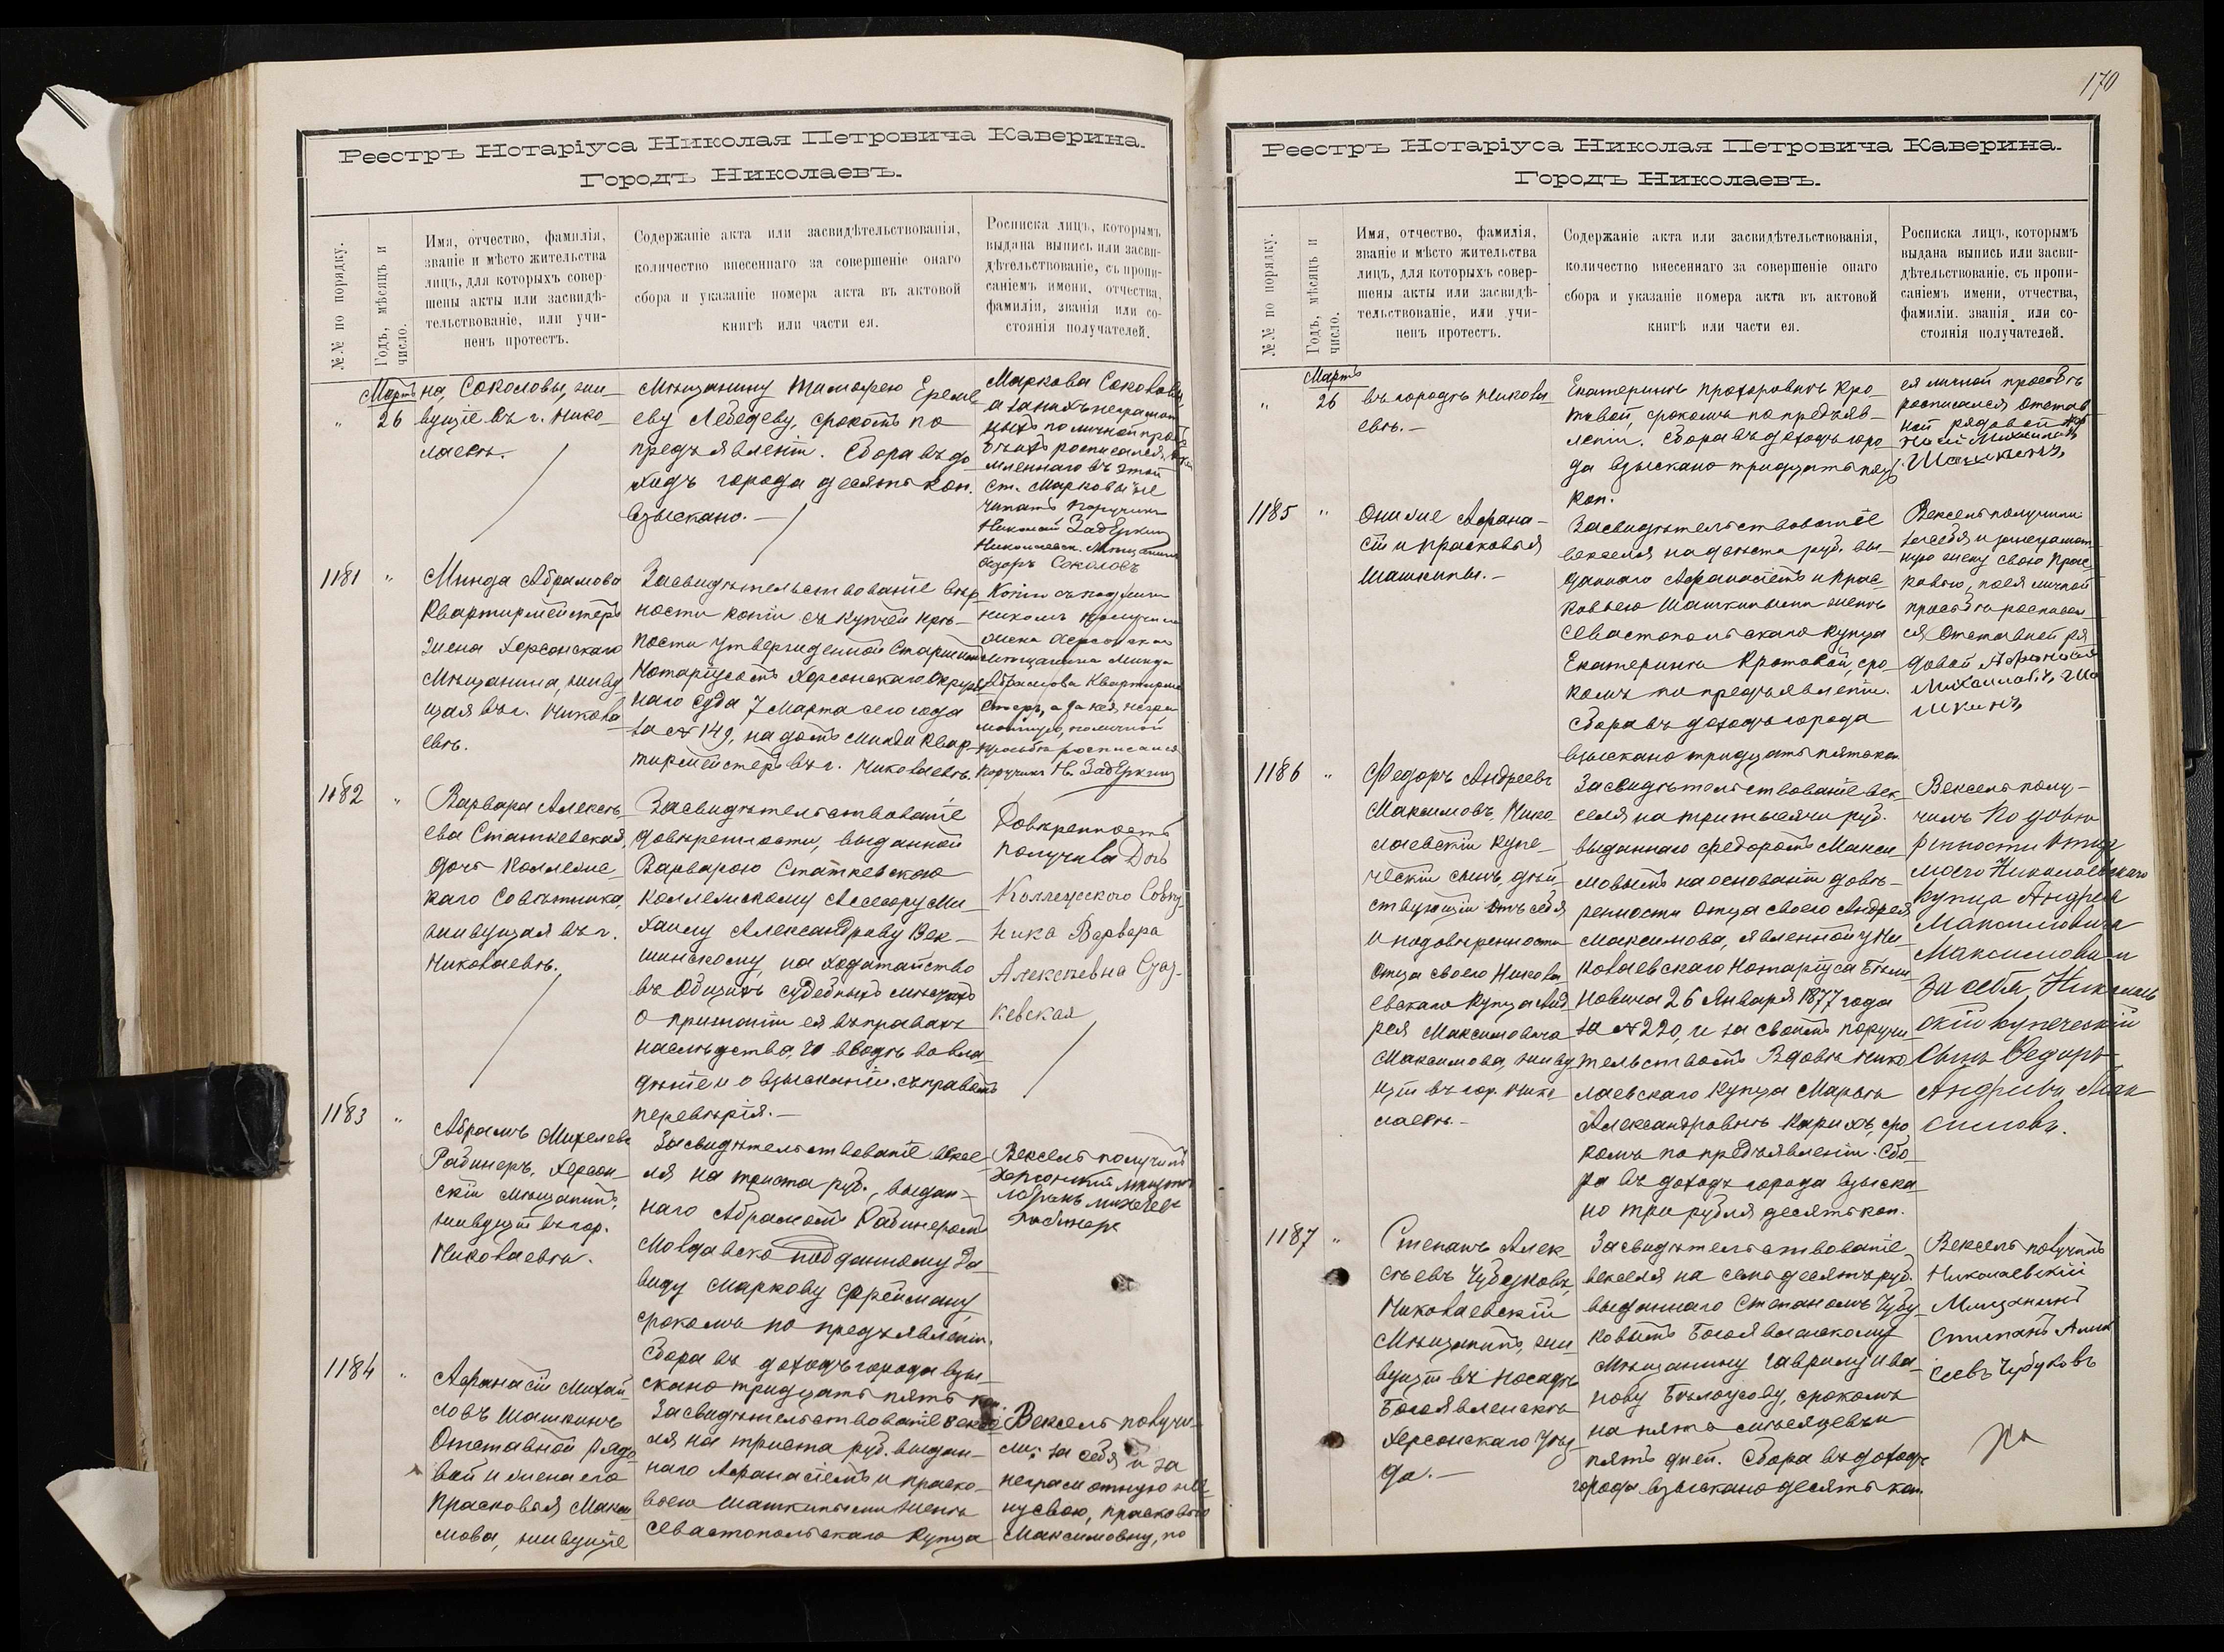 Реестръ Нотаріуса Николая Петровича Каверина.
Городъ Николаевъ.
№№ по порядку.
Годъ, мѣсяцъ и
число.
Имя, отчество, фамилія,
званіе и мѣсто жительства
лицъ, для которыхъ совер
шены акты или засвидѣ-
тельствованіе, или учи-
ненъ протестъ.
Содержаніе акта или засвидѣтельствованія,
количество внесеннаго за совершеніе онаго
сбора и указаніе номера акта въ актовой
книгѣ или части ея.
Росписка лицъ, которымъ
выдана выпись или засви-
дѣтельствованіе, съ пропи-
саніемъ имени, отчества,
фамиліи, званія или со-
стоянія получателей.
Мартъ
" 26
на, Соколовы, жи-
вущіе въ г. Нико
лаевѣ.
Мѣщанину Тимофею Ереме
еву Лебедеву, срокомъ по
предъявленіи. Сбора въ до
ходъ города десять коп.
взыскано.
Маркова Соколовы,
а за нихъ неграмот
ныхъ по личной прос
росписался
въ этой
ст. Марковы не
читать Поручикъ
Николай ЗадЕркин
Николаевск. Мѣщанинъ
Соколовъ
1181 "
Минда Абрамова
Квартирмейстеръ
жена Херсонскаго
Мѣщанина, живу
щая въ г. Никола
евѣ.
Засвидѣтельствованіе вѣр
ности копіи съ купчей крѣ-
пости утвержденной Старшимъ
Нотаріусомъ Херсонскаго Окруж
наго Суда 7 Марта сего года
за № 149, на домъ Минды Квар-
тирмейстеръ въ г. Николаевѣ.
Копію съ подлин
никомъ получила
жена Херсонскаго
мѣщанина Минда
Абрамова Квартирмей
стеръ, а за нея негра
мотную, по личной
просьбѣ росписался
поручикъ Н. ЗадЕркин
1182 "
Варвара Алексѣ
ева Статкевская,
дочь Коллежс
каго Совѣтника,
живущая въ г.
Николаевѣ.
Засвидѣтельствованіе
довѣренности, выданной
Варварою Статкевскою
Коллежскому Ассесору Ми-
хаилу Александрову Век-
шинскому, на ходатайство
въ Общихъ судебныхъ мѣстахъ
о признаніи ея въ правахъ
наслѣдства, о вводѣ во вла
дѣніе и о взысканіи, съ правомъ
перевѣрія.
Довѣренность
получила Дочь
Коллежского Совѣт
ника Варвара
Алексѣевна Стат-
кевская
1183 "
Абрамъ Михелевъ
Рабинеръ, Херсон-
скій мѣщанинъ,
живущій въ гор.
Николаевѣ.
Засвидѣтельствованіе вексе
ля на триста руб., выдан-
наго Абрамомъ Рабинеромъ
Молдавско подданному Да
виду Маркову Фрейману,
срокомъ по предъявленіи.
Сбора въ доходъ города взы-
скано тридцать пять коп.
Вексель получилъ
Херсонскій мѣщанинъ
Абрамъ Михелевъ
Рабинеръ
1184 "
Афанасій Михай
ловъ Шашкинъ
Отставной Рядо
вой и жена его
Прасковья Макси
мова, живущіе
Засвидѣтельствованіе вексе
ля на триста руб. выдан-
наго Афанасіемъ и Праско-
вьею Шашкиными женѣ
Севастопольскаго Купца
Вексель получи-
ли: за себя и за
неграмотную же
ну свою, Прасковью
Максимовну, по
170
Реестръ Нотаріуса Николая Петровича Каверина.
Городъ Николаевъ.
№№ по порядку.
Годъ, мѣсяцъ и
число.
Имя, отчество, фамилія,
званіе и мѣсто жительства
лицъ, для которыхъ совер-
шены акты или засвидѣ-
тельствованіе, или учи-
ненъ протестъ.
Содержаніе акта или засвидѣтельствованія,
количество внесеннаго за совершеніе онаго
сбора и указаніе номера акта въ актовой
книгѣ или части ея.
Росписка лицъ, которымъ
выдана выпись или засви-
дѣтельствованіе, съ пропи-
саніемъ имени, отчества,
фамиліи, званія или со-
стоянія получателей.
Мартъ
" 26
въ городѣ Никола
евѣ.
Екатеринѣ Прохоровнѣ Кро
товой, срокомъ по предъяв-
леніи. Сбора въ доходъ горо
да взыскано тридцать пять
коп.
ея личной просьбѣ
росписался Отстав
ной рядовой
Михаиловъ
Шашкинъ
1185 "
Они же Афана-
сій и Прасковья
Шашкины.
Засвидѣтельствованіе
векселя на двѣста руб. вы-
даннаго Афанасіемъ и Прас-
ковьею Шашкиными женѣ
Севастопольскаго Купца
Екатеринѣ Кротовой, сро-
комъ по предъявленіи.
Сбора въ доходъ города
взыскано тридцать пять коп.
Вексель получили
за себя и за неграмот
ную жену свою Прас-
ковью, по ея личной
просьбѣ росписал
ся Отставной ря
довой Афонасій
Михаиловъ Ша
шкинъ
1186 "
Федоръ Андреевъ
Максимовъ, Нико
лаевскій Купе-
ческій сынъ, дѣй-
ствующій отъ себя
и по довѣренности
Отца своего Никола
евскаго Купца Анд
рея Максимовича
Максимова, живу
щій въ гор. Нико
лаевѣ.
Засвидѣтельствованіе век
селя на три тысячи руб.
выданнаго Федоромъ Макси
мовымъ на основаніи довѣ-
ренности Отца своего Андрея
Максимова, явленной у Ни
колаевскаго Нотаріуса Блаж
новича 26 Января 1877 года
за № 220, и за своимъ поручи
тельствомъ Вдовѣ Нико
лаевскаго Купца Марьѣ
Александровнѣ Карихъ, сро
комъ по предъявленіи. Сбо
ра въ доходъ города взыска
но три рубля десять коп.
Вексель полу-
чилъ По довѣ
ренности Отца
моего Николаевскаго
Купца Андрея
Максимовича
Максимова и
За себя, Николаев
скій купеческій
Сынъ Федоръ
Андреевъ Мак
симовъ.
1187 "
Степанъ Алек-
сѣевъ Чубуковъ,
Николаевскій
Мѣщанинъ, жи
вущій въ Посадѣ
Богоявленскѣ
Херсонскаго Уѣз-
да.
Засвидѣтельствованіе
векселя на семьдесятъ руб.
выданнаго Степаномъ Чубу
ковымъ Богоявленскому
Мѣщанину Гаврилу Ива-
нову Бѣлоусову, срокомъ
на пять мѣсяцевъ и
пять дней. Сбора въ доходъ
города взыскано десять коп.
Вексель получилъ
Николаевскій
Мѣщанинъ
Степанъ Алек
сеевъ Чубуковъ